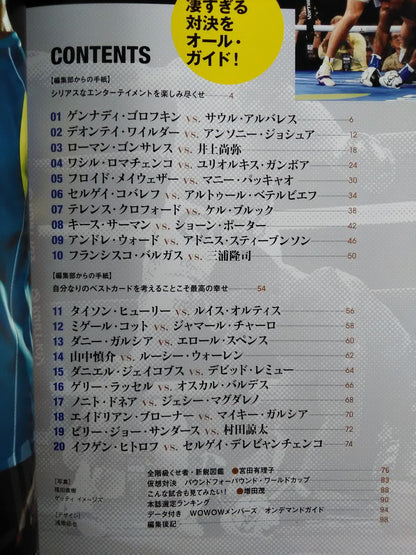 凄すぎる
対決を
オール・
ガイド！
CONTENTS
【編集部からの手紙】
シリアスなエンターテイメントを楽しみ尽くせ 4
01 ゲンナディ・ゴロフキン vs. サウル・アルバレス 6
02 デオンテイ・ワイルダー vs. アンソニー・ジョシュア 12
03 ローマン・ゴンサレス vs. 井上尚弥 18
04 ワシル・ロマチェンコ vs. ユリオルキス・ガンボア 24
05 フロイド・メイウェザー vs. マニー・パッキャオ 30
06 セルゲイ・コバレフ vs. アルトゥール・ベテルビエフ 34
07 テレンス・クロフォード vs. ケル・ブルック 38
08 キース・サーマン vs. ショーン・ポーター 42
09 アンドレ・ウォード vs. アドニス・スティーブンソン 46
10 フランシスコ・バルガス vs. 三浦隆司 50
【編集部からの手紙】
自分なりのベストカードを考えることこそ最高の幸せ 54
11 タイソン・ヒューリー vs. ルイス・オルティス 56
12 ミゲール・コット vs. ジャマール・チャーロ 58
13 ダニー・ガルシア vs. エロール・スペンス 60
14 山中慎介 vs. ルーシー・ウォーレン 62
15 ダニエル・ジェイコブス vs. デビッド・レミュー 64
16 ゲリー・ラッセル vs. オスカル・バルデス 66
17 ノニト・ドネア vs. ジェシー・マグダレノ 68
18 エイドリアン・ブローナー vs. マイキー・ガルシア 70
19 ビリー・ジョー・サンダース vs. 村田諒太 72
20 イフゲン・ヒトロフ vs. セルゲイ・デレビャンチェンコ 74
全階級くせ者・新鋭図鑑 宮田有理子 76
仮想対決 パウンドフォーパウンド・ワールドカップ 83
こんな試合も見てみたい！ 増田茂 88
本誌選定ランキング 90
データ付き WOWOWメンバーズ オンデマンドガイド 94
編集後記 98
【写真】
福田直樹
ゲッティ イメージズ
【デザイン】